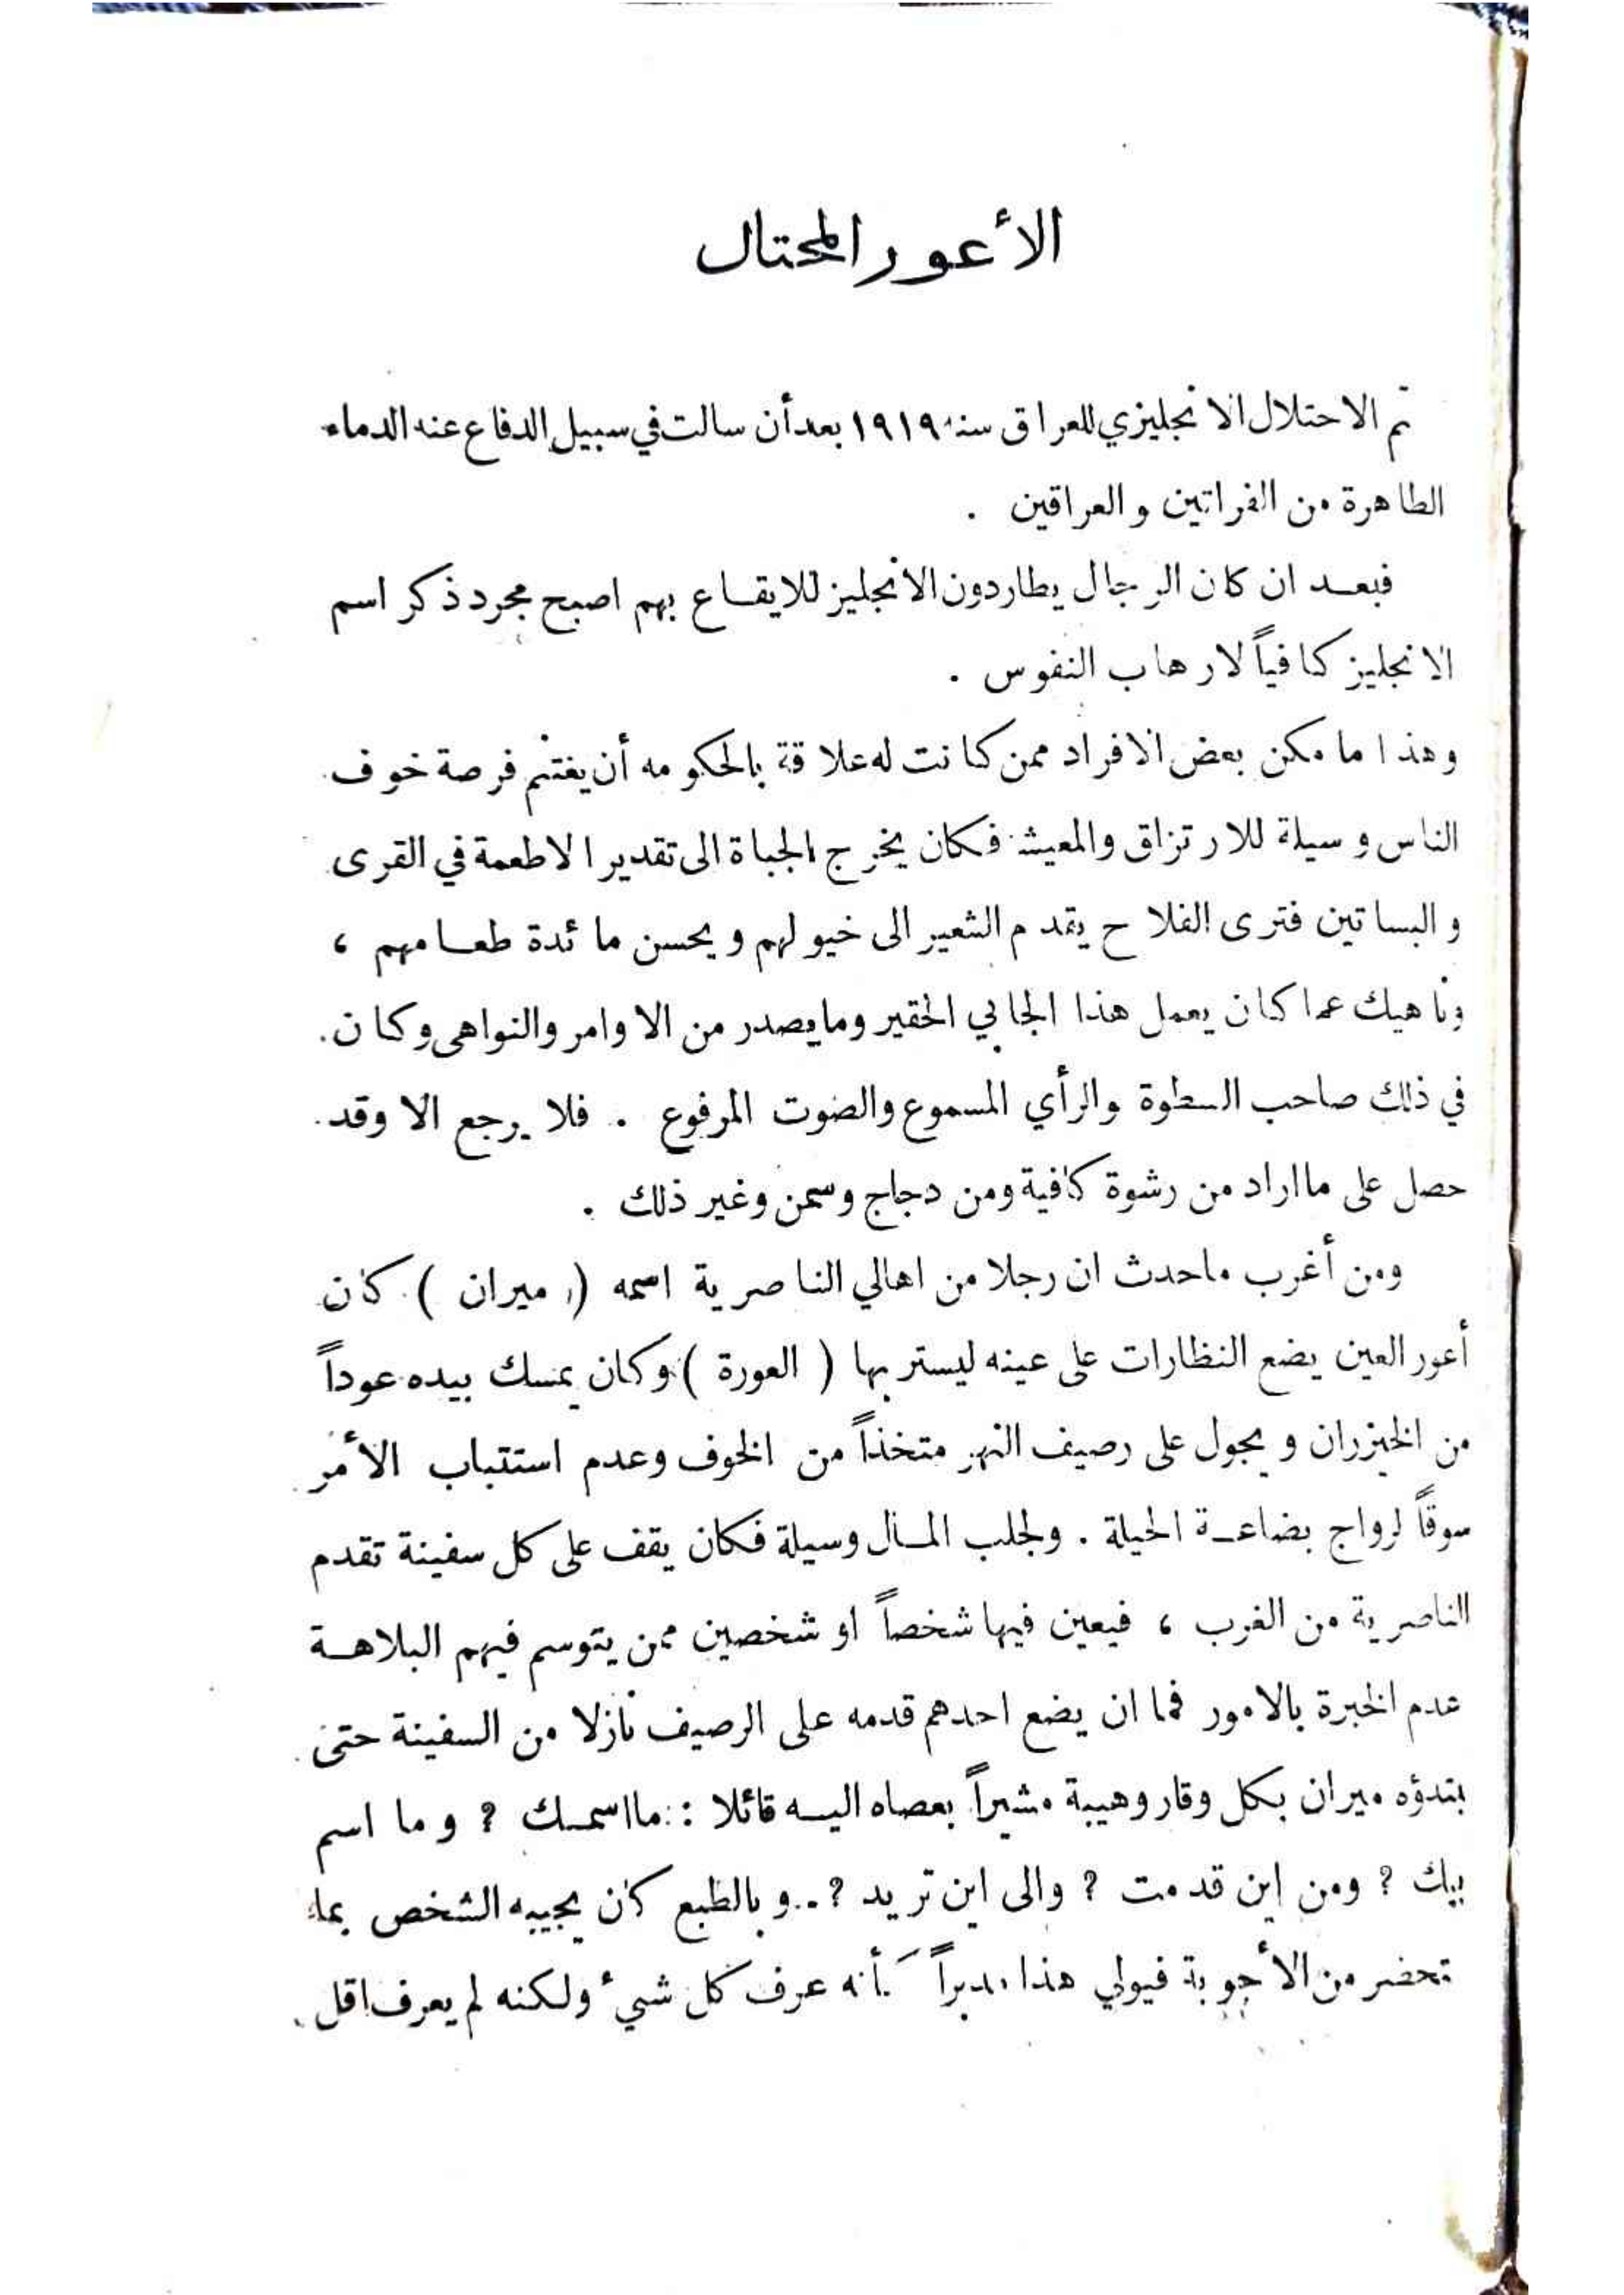 الأعور المحتال
تم الاحتلال الانجليزي للعراق سنة ١٩١٩ بعد أن سالت في سبيل الدفاع عنه الدماء
الطاهرة من الفراتين والعراقين .
فبعد ان كان الرجال يطاردون الانجليز للايقاع بهم اصبح مجرد ذكر اسم
الانجليز كافياً لارهاب النفوس .
وهذا ما مكن بعض الافراد ممن كانت له علاقة بالحكومه أن يغتنم فرصة خوف
الناس وسيلة للارتزاق والمعيشة فكان يخرج الجباة الى تقدير الاطعمة في القرى
والبساتين فترى الفلاح يقدم الشعير الى خيولهم ويحسن مائدة طعامهم ،
وناهيك عما كان يعمل هذا الجابي الحقير وما يصدر من الاوامر والنواهى وكان
في ذلك صاحب السطوة والرأي المسموع والصوت المرفوع . فلا يرجع الا وقد
حصل على ما اراد من رشوة كافية ومن دجاج وسمن وغير ذلك .
ومن أغرب ماحدث ان رجلا من اهالي الناصرية اسمه ( ميران ) كان
أعور العين يضع النظارات على عينه ليستر بها ( العورة ) وكان يمسك بيده عوداً
من الخيزران ويجول على رصيف النهر متخذاً من الخوف وعدم استتباب الأمر
سوقاً لرواج بضاعة الحيلة . ولجلب المال وسيلة فكان يقف على كل سفينة تقدم
الناصرية من الغرب ، فيعين فيها شخصاً او شخصين ممن يتوسم فيهم البلاهة
عدم الخبرة بالامور فما ان يضع احدهم قدمه على الرصيف نازلا من السفينة حتى
بتدؤه ميران بكل وقار وهيبة مشيراً بعصاه اليه قائلا : ما اسمك ? وما اسم
بيك ? ومن اين قدمت ? والى اين تريد ?.. وبالطبع كان يجيبه الشخص بما
تحضر من الأجوبة فيولي هذا مدبراً كأنه عرف كل شيء ولكنه لم يعرف اقل